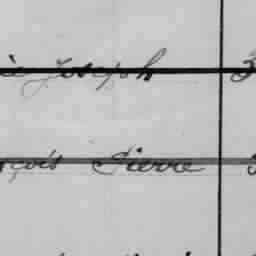 ie Joseph 3
nçois Pierre